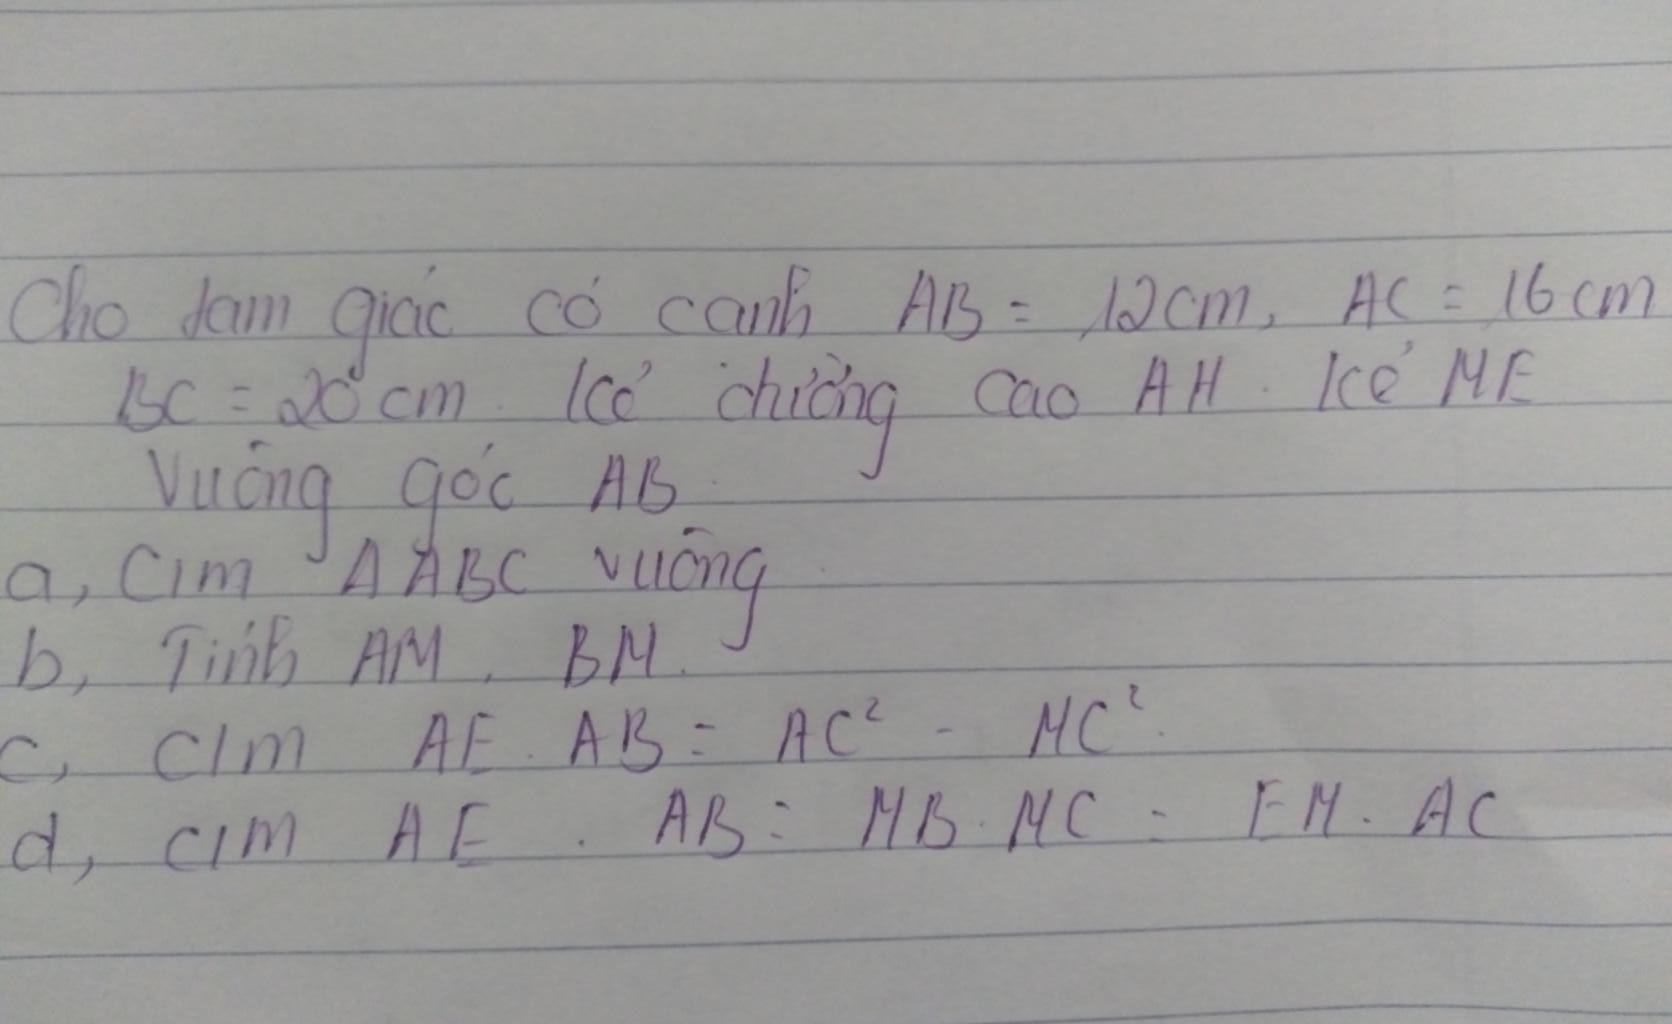 Cho tam giác có canh AB = 12cm, AC = 16cm
BC = 20cm. Kẻ đường cao AH. Kẻ ME
Vuông góc AB.
a, C/m Δ ABC vuông
b, Tính AM, BM.
c, c/m AE. AB = AC² - MC².
d, c/m AE . AB = MB. MC = EM. AC